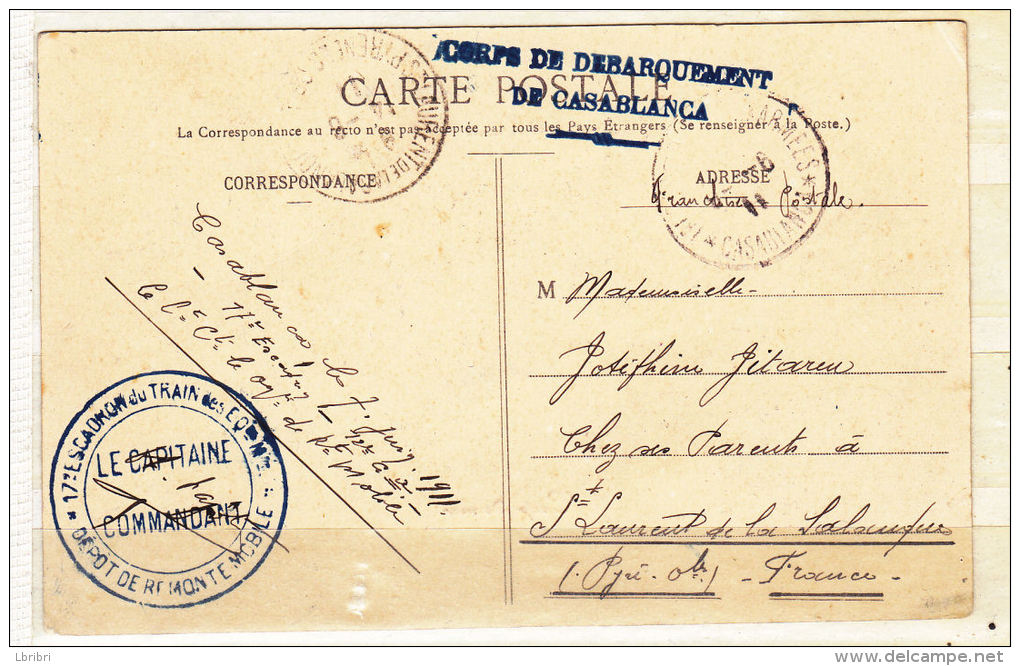 CORPS DE DEBARQUEMENT
DE CASABLANCA
CARTE POSTALE
La Correspondance au recto n'est pas acceptée par tous les Pays Étrangers (Se renseigner à la Poste.)
CORRESPONDANCE
ADRESSE
Franchise Postale
CASABLANCA
Casablanca, le 7 juin 1911
17e Escadron
M Mademoiselle
Joséphine Jitareu
Chez ses Parents à
St Laurent de la Salanque
(Pyré-Ob les) - France -
* 17e ESCADRON du TRAIN des EQ
LE CAPITAINE
COMMANDANT
DÉPOT DE REMONTE MOBILE
Lbribri
delcampe.net